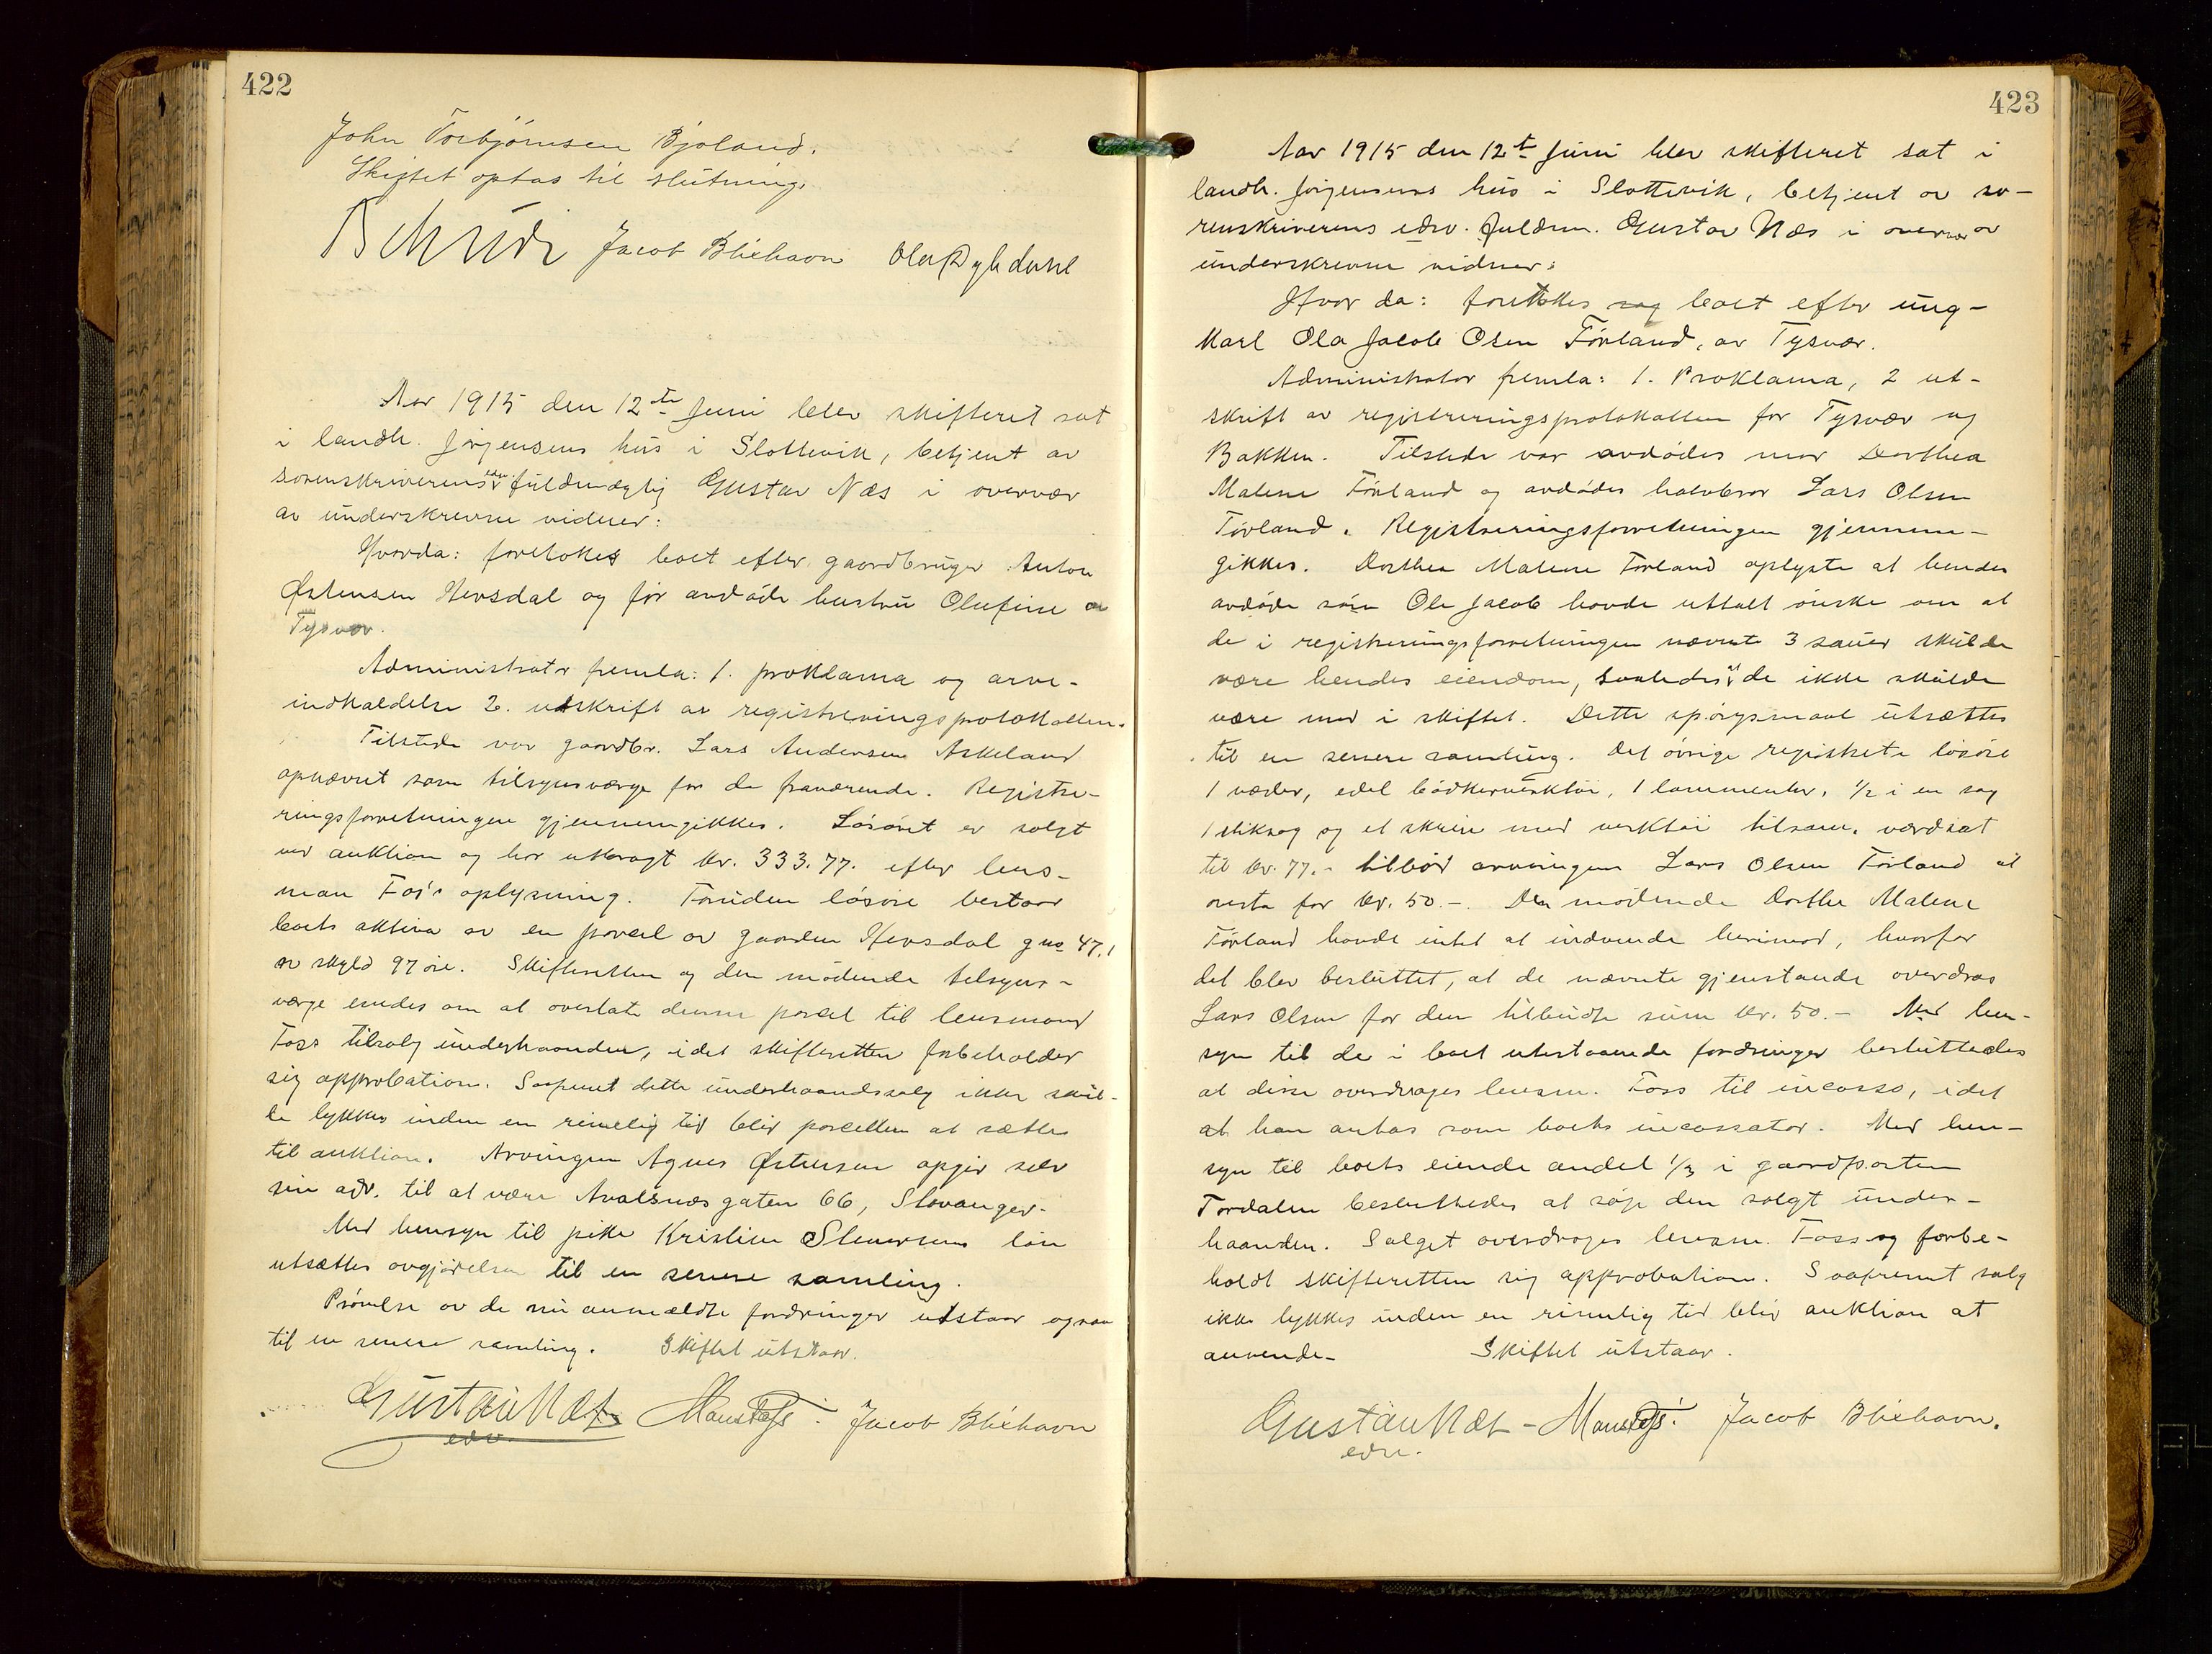 422
John Torbjørnsen Bjoland.
Skiftet optas til slutning.
Jacob Bliehavn Ola Dybdahl
Aar 1915 den 12te Juni blev skifteret sat
i landh. Jørgensens hus i Slottevik, betjent av
sorenskriverens edsv. fuldmægtig Gustav Næs i overvær
av underskrevne vidner:
Hvorda: foretokes boet efter gaardbruger Anton
Østensen Hersdal og før avdøde hustru Olufine av
Tysvær.
Administrator fremla: 1. proklama og arve-
indkaldelse 2. utskrift av registreringsprotokollen.
Tilstede var gaardbr. Lars Andersen Askeland
opnævnt som tilsynsværge for de fraværende. Registre-
ringsforretningen gjennemgikkes. Løsøret er solgt
ved auktion og har utbragt kr. 333.77. efter lens-
man Fos's oplysning. Foruden løsøre bestaar
boets aktiva av en parcel av gaarden Hersdal gno 47,1
av skyld 97 øre. Skifteretten og den mødende tilsyns-
værge enedes om at overlate denne parcel til lensmand
Foss tilsalg underhaanden, idet skifteretten forbeholder
sig approbation. Saafremt dette underhaandssalg ikke skul-
le lykkes inden en rimelig tid blir parcellen at sætte
til auktion. Arvingen Agnes Østensen opgir selv
sin adr. til at være Avalsnesgaten 66, Stavanger.
Med hensyn til pike Kristine Stenersens løn
utsættes avgjørelsen til en senere samling.
Prøvelse av de nu anmeldte fordringer utstaar ogsaa
til en senere samling. Skiftet utstaar.
Gustav Næs Mons Fos. Jacob Bliehavn
edsv.
423
Aar 1915 den 12t Juni blev skifteret sat i
landh. Jørgensens hus i Slottevik, betjent av so-
renskriverens edsv. fuldm. Gustav Næs i overvær av
underskrevne vidner:
Hvor da: foretokes sag boet efter ung-
karl Ola Jacob Olsen Førland, av Tysvær.
Administrator fremla: 1. Proklama, 2 ut-
skrift av registreringsprotokollen for Tysvær og
Bokken. Tilstede var avdødes mor Dorthea
Malene Førland og avdødes halvbror Lars Olsen
Førland. Registreringsforretningen gjennem-
gikkes. Dorthea Malene Førland oplyste at hendes
avdøde søn Ole Jacob havde uttalt ønske om at
de i registreringsforretningen nævnte 3 sauer skulde
være hendes eiendom, saaledes at de ikke skulde
være med i skiftet. Dette spørgsmaal utsættes
til en senere samling. Det øvrige registrerte løsøre
1 væder, edel bødkerverktøi, 1 lommeuhr, 1/2 i en sag
1 stiksag og et skrin med verktøi tilsam. værdsat
til kr. 77.- tilbød arvingen Lars Olsen Førland at
overta for kr. 50.-. Den mødende Dorthe Malene
Førland havde intet at indvende herimod, hvorfor
det blev besluttet, at de nævnte gjenstande overdras
Lars Olsen for den tilbudte sum kr. 50.- Med hen-
syn til de i boet utestaaende fordringer besluttedes
at disse overdrages lensm. Foss til incasso, idet
at han antas som boets incassator. Med hen-
syn til boets eiende andel 1/3 i gaardparten
Førdalen besluttedes at søge den solgt under-
haanden. Salget overdrages lensm. Foss og forbe-
holdt skifteretten sig approbation. Saafremt salg
ikke lykkes inden en rimelig tid blir auktion at
anvende- Skiftet utstaar.
Gustav Næs - Mons Fos. Jacob Bliehavn.
edsv.